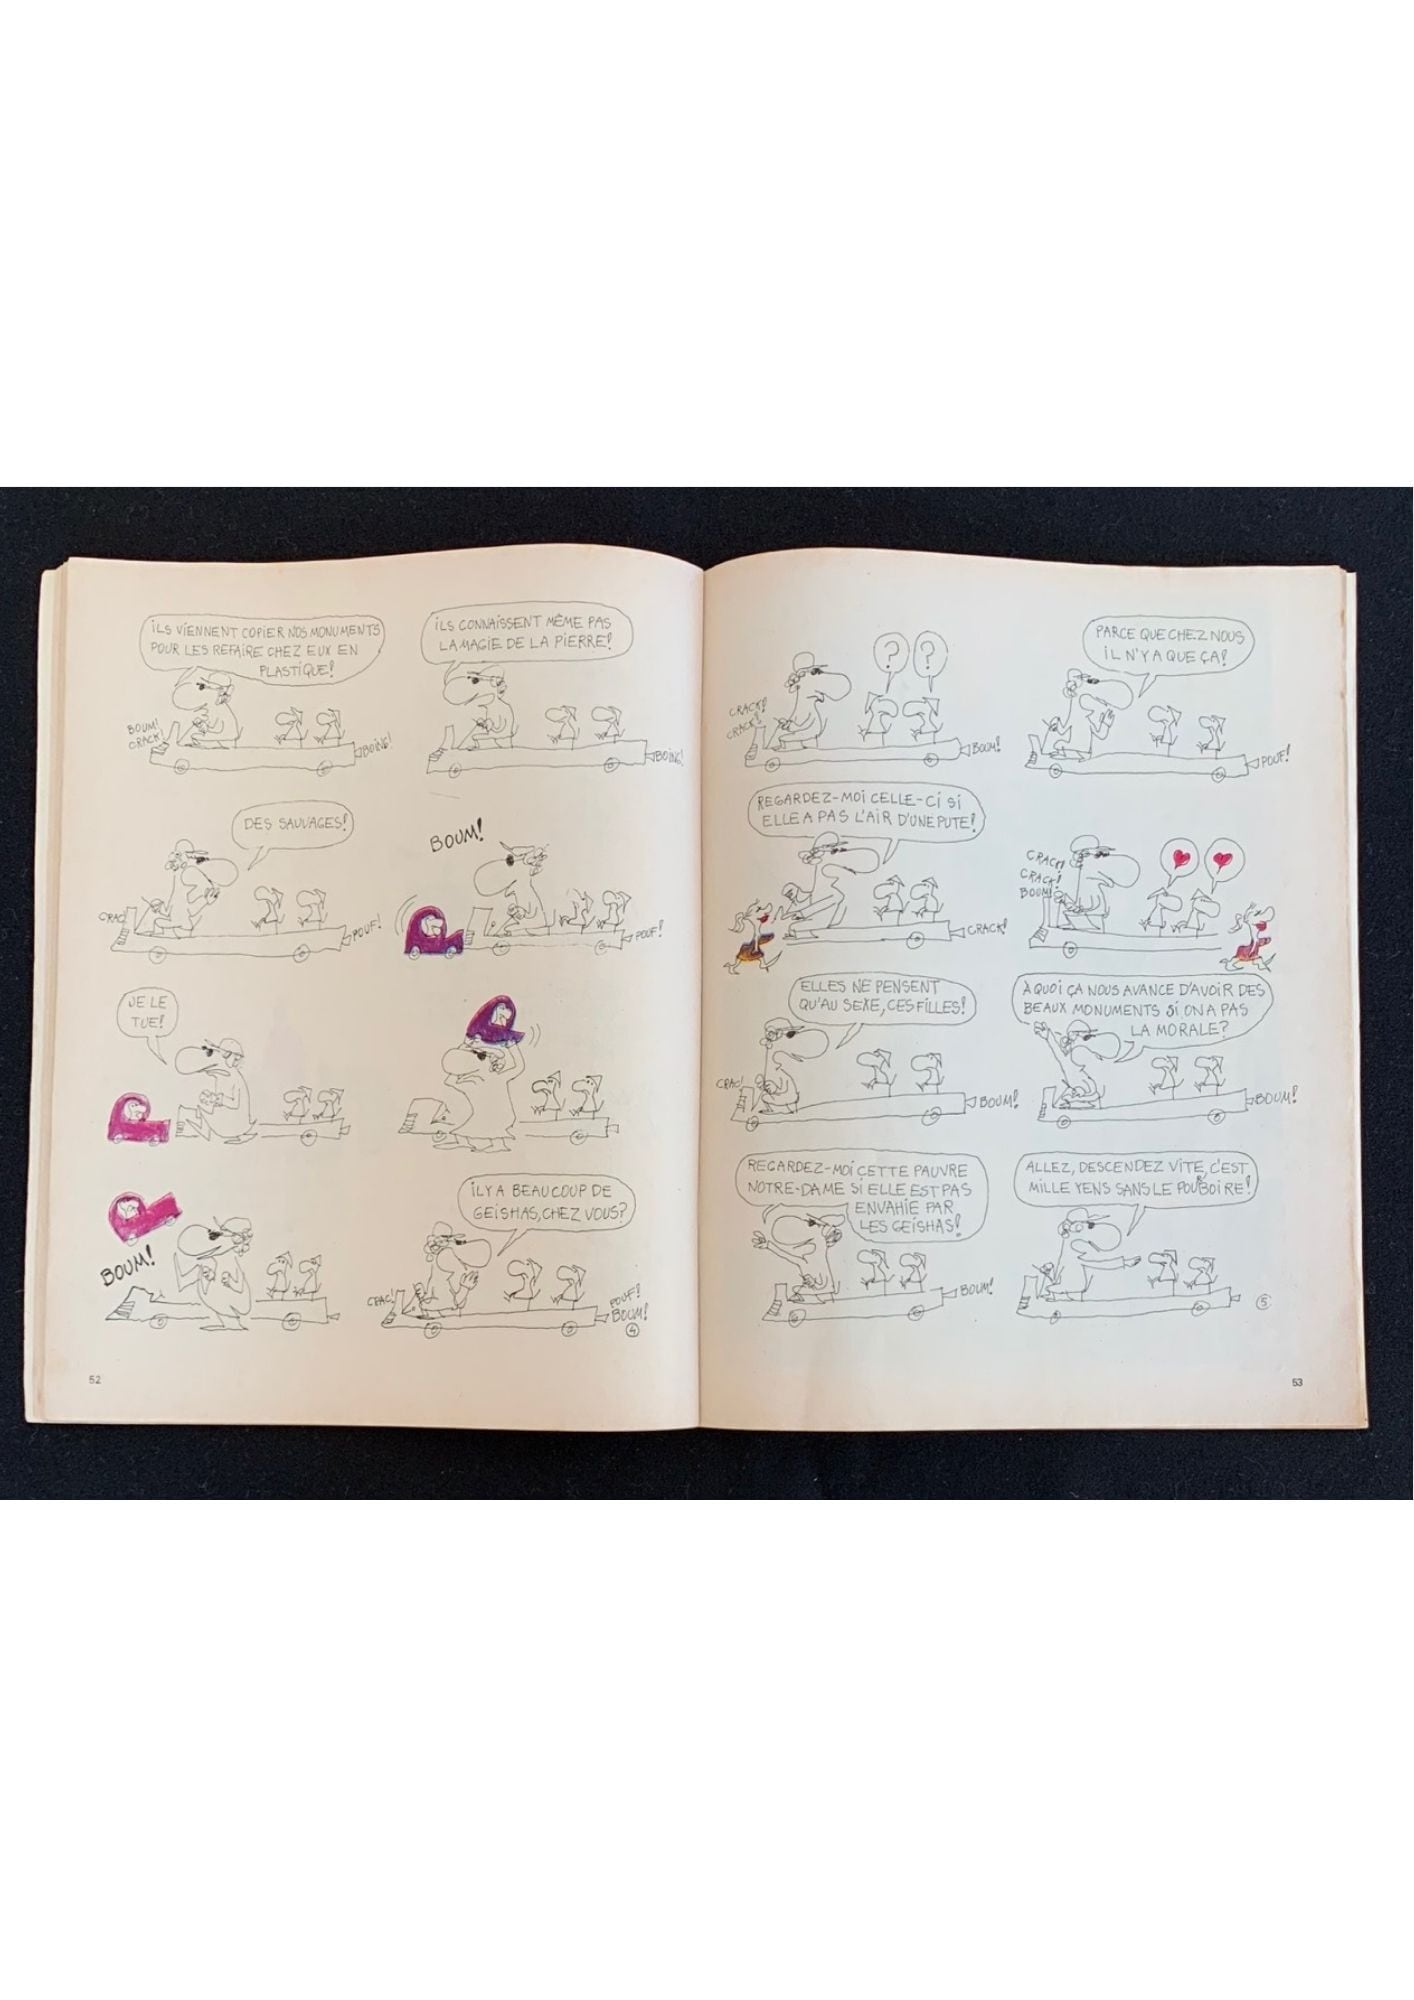 ILS VIENNENT COPIER NOS MONUMENTS
POUR LES REFAIRE CHEZ EUX EN
PLASTIQUE!
BOUM!
CRACK!
BOING!
ILS CONNAISSENT MÊME PAS
LA MAGIE DE LA PIERRE!
BOING!
DES SAUVAGES!
CRAC!
POUF!
BOUM!
POUF!
JE LE
TUE!
BOUM!
IL Y A BEAUCOUP DE
GEISHAS, CHEZ VOUS?
CRAC!
POUF!
BOUM!
4
52
? ?
CRACK!
CRACK!
BOUM!
PARCE QUE CHEZ NOUS
IL N'Y A QUE ÇA!
POUF!
REGARDEZ-MOI CELLE-CI SI
ELLE A PAS L'AIR D'UNE PUTE!
CRACK!
CRACK!
CRACK!
BOUM!
ELLES NE PENSENT
QU'AU SEXE, CES FILLES!
CRAC!
BOUM!
A QUOI ÇA NOUS AVANCE D'AVOIR DES
BEAUX MONUMENTS SI ON A PAS
LA MORALE?
BOUM!
REGARDEZ-MOI CETTE PAUVRE
NOTRE-DAME SI ELLE EST PAS
ENVAHIE PAR
LES GEISHAS!
BOUM!
ALLEZ, DESCENDEZ VITE, C'EST
MILLE YENS SANS LE POURBOIRE!
5
53